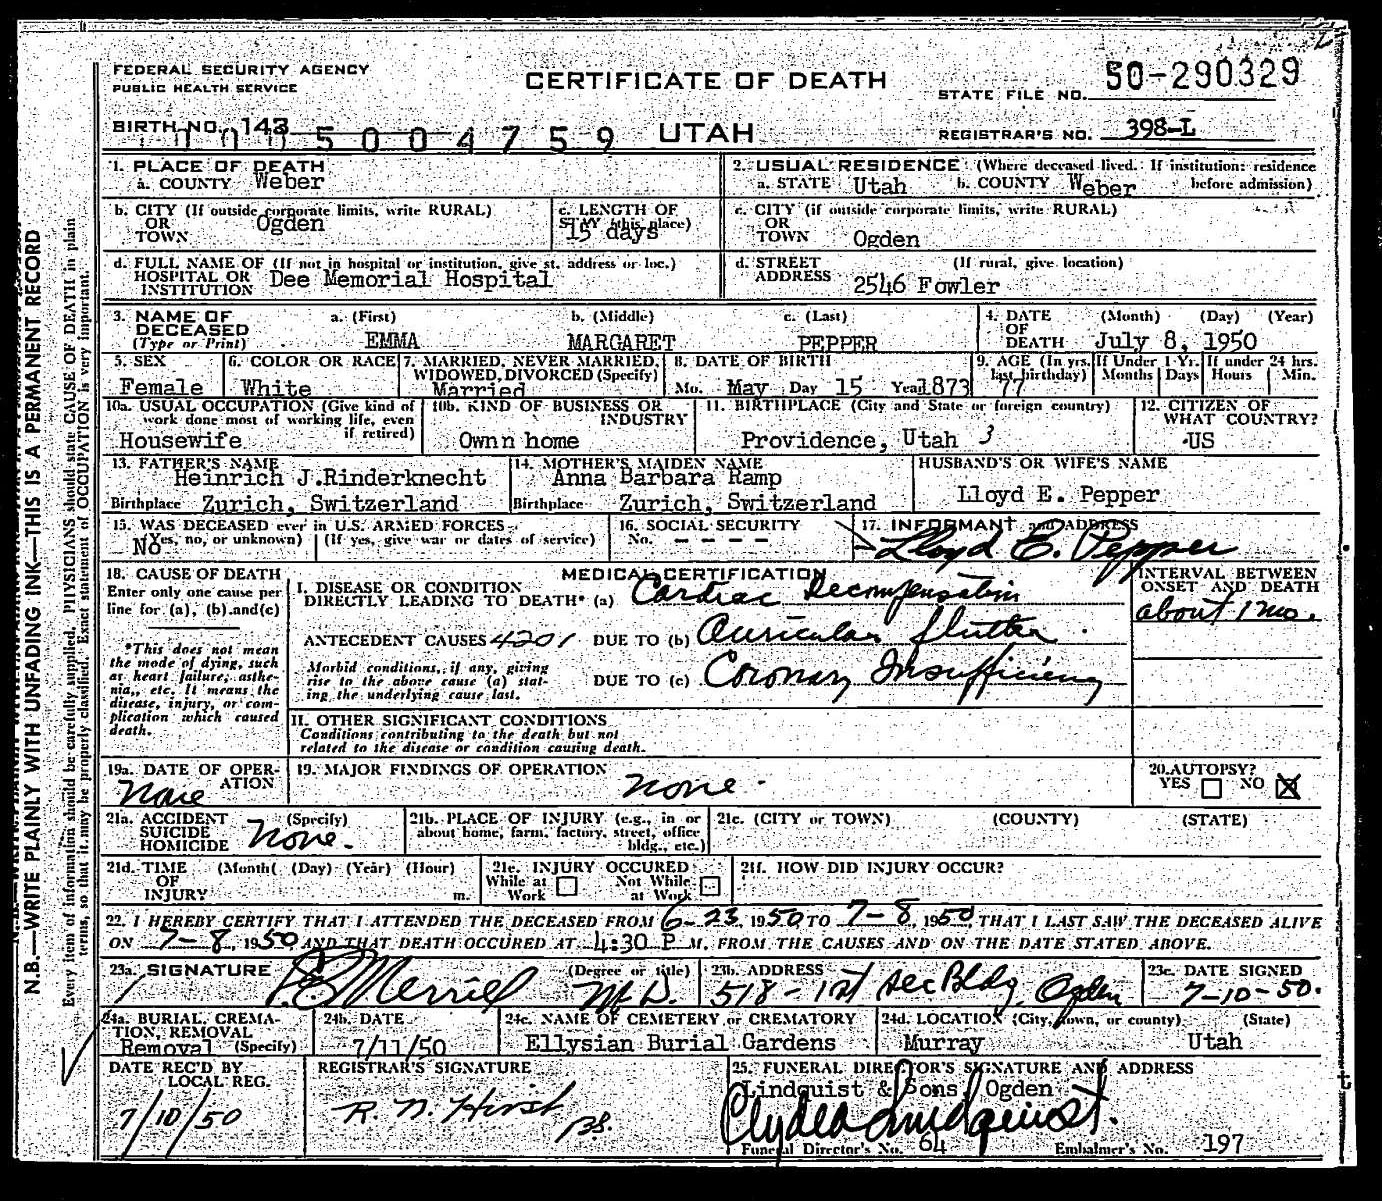 FEDERAL SECURITY AGENCY
PUBLIC HEALTH SERVICE
CERTIFICATE OF DEATH
STATE FILE NO. 50-290329
BIRTH NO. 143
5004759
UTAH
REGISTRAR'S NO. 398-L
1. PLACE OF DEATH
a. COUNTY Weber
2. USUAL RESIDENCE (Where deceased lived. If institution: residence before admission)
a. STATE Utah b. COUNTY Weber
b. CITY (If outside corporate limits, write RURAL)
OR
TOWN Ogden
c. LENGTH OF
STAY (this place)
15 days
c. CITY (if outside corporate limits, write RURAL)
OR
TOWN Ogden
d. FULL NAME OF (If not in hospital or institution, give st. address or loc.)
HOSPITAL OR
INSTITUTION Dee Memorial Hospital
d. STREET (If rural, give location)
ADDRESS 2546 Fowler
3. NAME OF
DECEASED
(Type or Print)
a. (First) EMMA
b. (Middle) MARGARET
c. (Last) PEPPER
4. DATE (Month) (Day) (Year)
OF
DEATH July 8, 1950
5. SEX
Female
6. COLOR OR RACE
White
7. MARRIED, NEVER MARRIED,
WIDOWED, DIVORCED (Specify)
Married
8. DATE OF BIRTH
Mo. May Day 15 Year 1873
9. AGE (In yrs. last birthday)
77
If Under 1 Yr.
Months Days
If under 24 hrs.
Hours Min.
10a. USUAL OCCUPATION (Give kind of
work done most of working life, even
if retired)
Housewife
10b. KIND OF BUSINESS OR
INDUSTRY
Ownn home
11. BIRTHPLACE (City and State or foreign country)
Providence, Utah 3
12. CITIZEN OF
WHAT COUNTRY?
US
13. FATHER'S NAME
Heinrich J.Rinderknecht
Birthplace Zurich, Switzerland
14. MOTHER'S MAIDEN NAME
Anna Barbara Ramp
Birthplace Zurich, Switzerland
HUSBAND'S OR WIFE'S NAME
Lloyd E. Pepper
15. WAS DECEASED ever in U.S. ARMED FORCES
(Yes, no, or unknown) (If yes, give war or dates of service)
No
16. SOCIAL SECURITY
No. - - - -
17. INFORMANT and ADDRESS
Lloyd E. Pepper
18. CAUSE OF DEATH
Enter only one cause per
line for (a), (b) and (c)
*This does not mean
the mode of dying, such
as heart failure, asthe-
nia, etc. It means the
disease, injury, or com-
plication which caused
death.
MEDICAL CERTIFICATION
I. DISEASE OR CONDITION
DIRECTLY LEADING TO DEATH* (a) Cardiac Decompensation
ANTECEDENT CAUSES 4201 DUE TO (b) Auricular flutter
Morbid conditions, if any, giving
rise to the above cause (a) stat-
ing the underlying cause last.
DUE TO (c) Coronary Insufficiency
INTERVAL BETWEEN
ONSET AND DEATH
about 1 mo.
II. OTHER SIGNIFICANT CONDITIONS
Conditions contributing to the death but not
related to the disease or condition causing death.
19a. DATE OF OPER-
ATION
None
19. MAJOR FINDINGS OF OPERATION
None
20. AUTOPSY?
YES NO X
21a. ACCIDENT (Specify)
SUICIDE
HOMICIDE None.
21b. PLACE OF INJURY (e.g., in or
about home, farm, factory, street, office
bldg., etc.)
21c. (CITY or TOWN) (COUNTY) (STATE)
21d. TIME (Month( (Day) (Year) (Hour)
OF
INJURY m.
21e. INJURY OCCURED
While at Work Not While at Work
21f. HOW DID INJURY OCCUR?
22. I HEREBY CERTIFY THAT I ATTENDED THE DECEASED FROM 6-23, 1950 TO 7-8, 1950, THAT I LAST SAW THE DECEASED ALIVE
ON 7-8, 1950 AND THAT DEATH OCCURED AT 4:30 P M, FROM THE CAUSES AND ON THE DATE STATED ABOVE.
23a. SIGNATURE (Degree or title)
Merrill M.D.
23b. ADDRESS
518 - 1st Sec Bldg Ogden
23c. DATE SIGNED
7-10-50.
24a. BURIAL, CREMA-
TION, REMOVAL
(Specify)
Removal
24b. DATE
7/11/50
24c. NAME OF CEMETERY or CREMATORY
Ellysian Burial Gardens
24d. LOCATION (City, town, or county) (State)
Murray Utah
DATE REC'D BY
LOCAL REG.
7/10/50
REGISTRAR'S SIGNATURE
R. N. Hirst
25. FUNERAL DIRECTOR'S SIGNATURE AND ADDRESS
Lindquist & Sons, Ogden
Lindquist
Funeral Director's No. 64 Embalmer's No. 197
N.B.—WRITE PLAINLY WITH UNFADING INK—THIS IS A PERMANENT RECORD
Every item of information should be carefully supplied. PHYSICIANS should state CAUSE OF DEATH in plain
terms, so that it may be properly classified. Exact statement of OCCUPATION is very important.